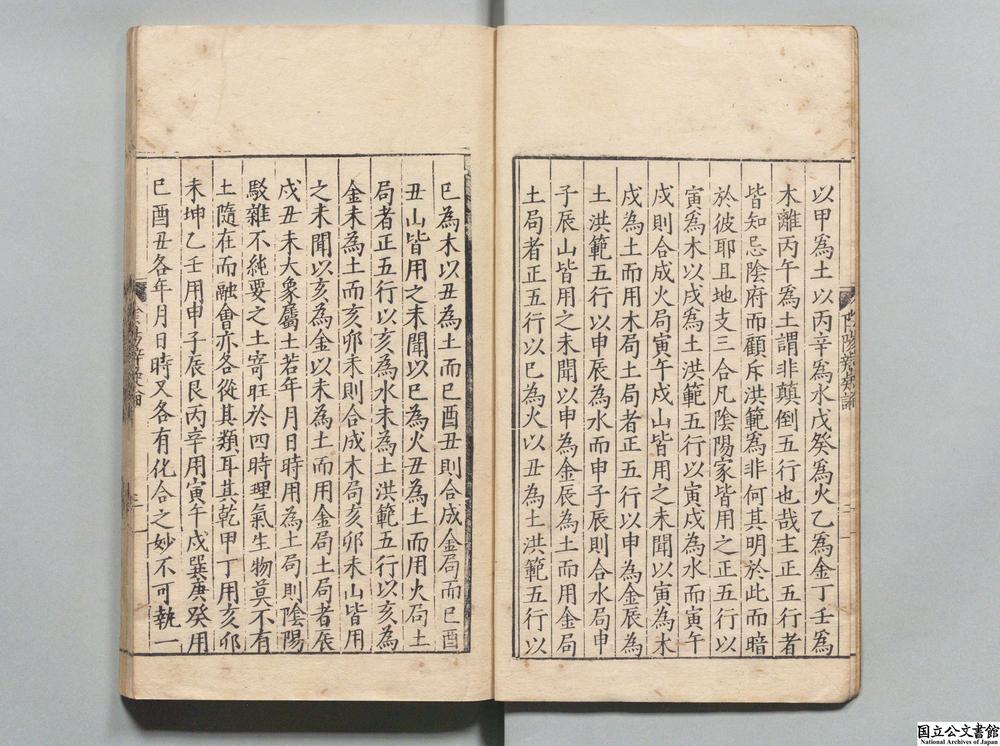 以甲爲土以丙辛爲水戊癸爲火乙爲金丁壬爲
木離丙午爲土謂非顛倒五行也哉主正五行者
皆知忌陰府而顧斥洪範爲非何其明於此而暗
於彼耶且地支三合凡陰陽家皆用之正五行以
寅爲木以戌爲土洪範五行以寅戌爲水而寅午
戌則合成火局寅午戌山皆用之未聞以寅為木
戌為土而用木局土局者正五行以申為金辰為
土洪範五行以申辰為水而申子辰則合水局申
子辰山皆用之未聞以申為金辰為土而用金局
土局者正五行以巳為火以丑為土洪範五行以
陰陽辯疑論
二
巳為木以丑為土而巳酉丑則合成金局而巳酉
丑山皆用之未聞以巳為火丑為土而用火局土
局者正五行以亥為水未為土洪範五行以亥為
金未為土而亥卯未則合成木局亥卯未山皆用
之未聞以亥為金以未為土而用金局土局者辰
戌丑未大象屬土若年月日時用為土局則陰陽
駁雜不純要之土寄旺於四時理氣生物莫不有
土隨在而融會亦各從其類耳其乾甲丁用亥卯
未坤乙壬用申子辰艮丙辛用寅午戌巽庚癸用
巳酉丑各年月日時又各有化合之妙不可執一
国立公文書館
National Archives of Japan